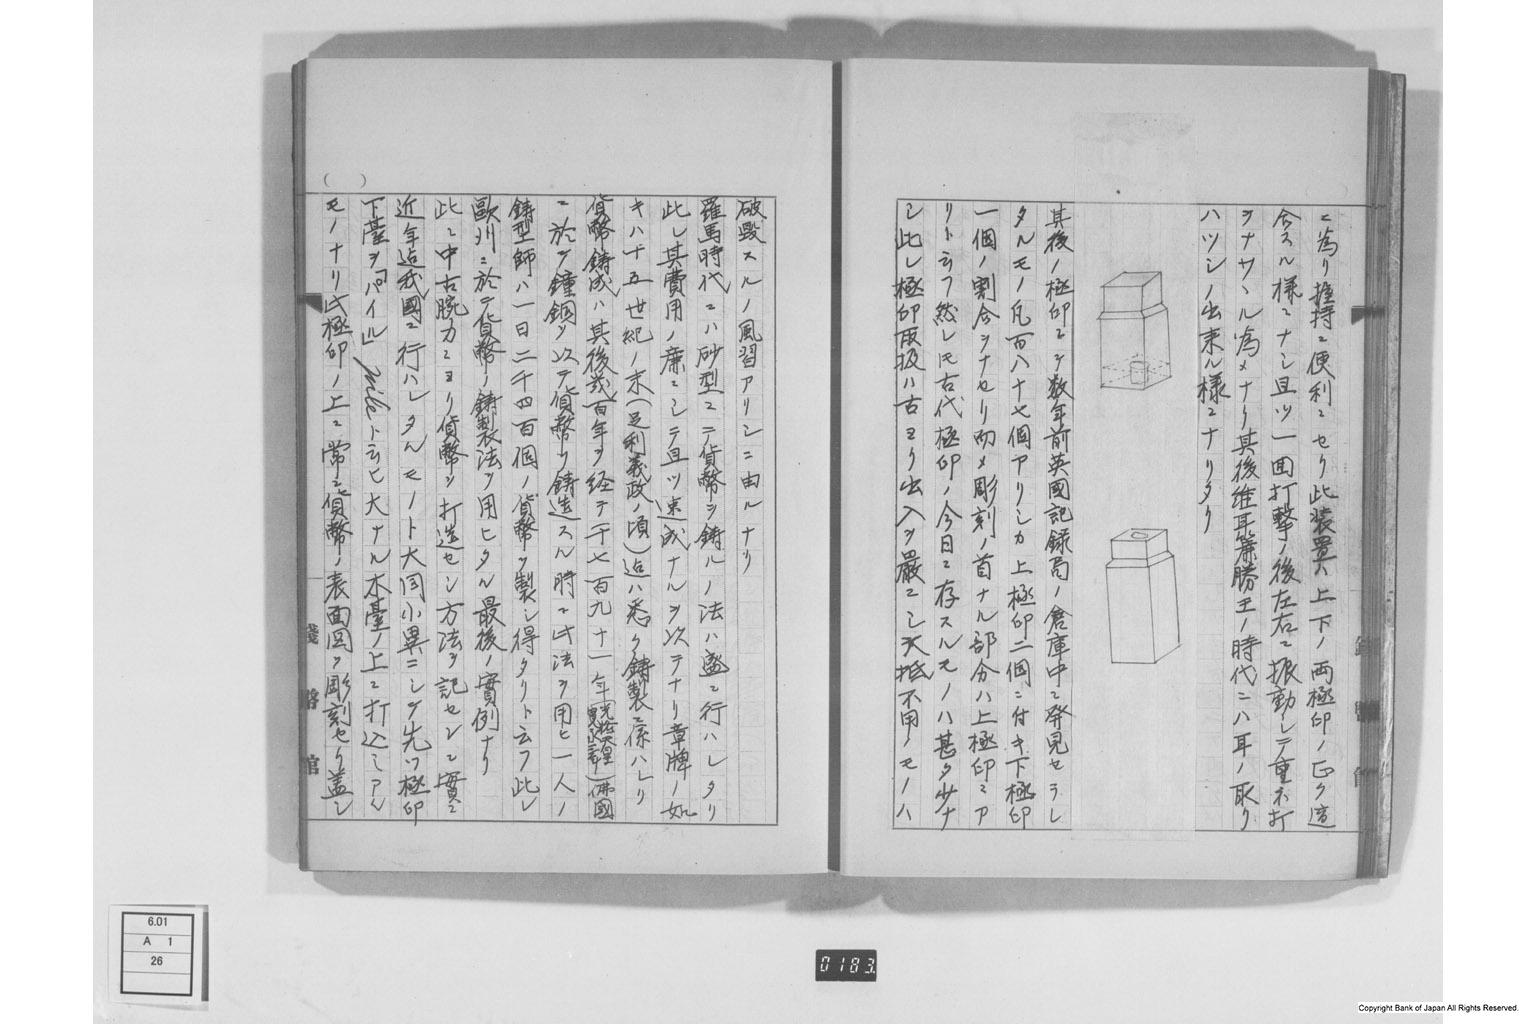 ニ為リ握持ニ便利ニセリ此装置ハ上下ノ両極印ノ正ク適
合スル様ニナシ且ツ一回打撃ノ後左右ニ振動シテ重ネ打
ヲナサヾル為メナリ其後維耳簾勝王ノ時代ニハ耳ノ取リ
ハツシノ出来ル様ニナリタリ
其後ノ極印ニシテ数年前英國記録局ノ倉庫中ニ発見セラレ
タルモノ凡百八十七個アリシカ上極印二個ニ付キ下極印
一個ノ割合ヲナセリ而〆彫刻ノ首ナル部分ハ上極印ニア
リト云フ然レモ古代極印ノ今日ニ存スルモノハ甚タ少ナ
シ此レ極印取扱ハ古ヨリ出入ヲ嚴ニシ大抵不用ノモノハ
破毀スルノ風習アリシニ由ルナリ
羅馬時代ニハ砂型ニテ貨幣ヲ鋳ルノ法ハ盛ニ行ハレタリ
此レ其費用ノ廉ニシテ且ツ速成ナルヲ以テナリ章牌ノ如
キハ十五世紀ノ末(足利義政ノ頃)迄ハ悉ク鋳製ニ係ハレリ
貨幣鋳成ハ其後幾百年ヲ経テ千七百九十一年(光格天皇寛政三年)佛國
ニ於テ鐘銅ヲ以テ貨幣ヲ鋳造スル時ニ此法ヲ用ヒ一人ノ
鋳型師ハ一日二千四百個ノ貨幣ヲ製シ得タリト云フ此レ
歐洲ニ於テ貨幣ノ鋳製法ヲ用ヒタル最後ノ實例ナリ
此ニ中古腕力ニヨリ貨幣ヲ打造セシ方法ヲ記センニ實ニ
近年迄我國ニ行ハレタルモノト大同小異ニシテ先ツ極印
下臺ヲ「パイル」pileト云ヒ大ナル木臺ノ上ニ打込ミアル
モノナリ此極印ノ上ニ常ニ貨幣ノ表面圖ヲ彫刻セリ蓋シ
錢幣館
6.01
A 1
26
0183.
Copyright Bank of Japan All Rights Reserved.